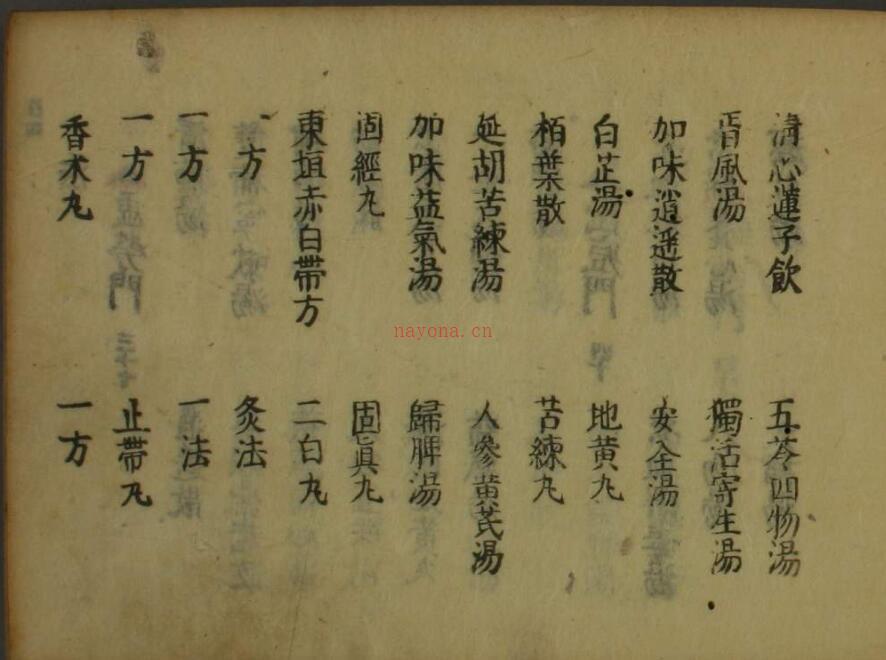 清心蓮子飲 五苓四物湯
胃風湯 獨活寄生湯
加味逍遥散 安全湯
白芷湯 地黄丸
栢葉散 苦練丸
延胡苦練湯 人參黄芪湯
加味益氣湯 歸脾湯
固經丸 固眞丸
東垣赤白帶方 二白丸
一方 灸法
一方 一法
一方 止帶丸
香朮丸 一方
nayona.cn